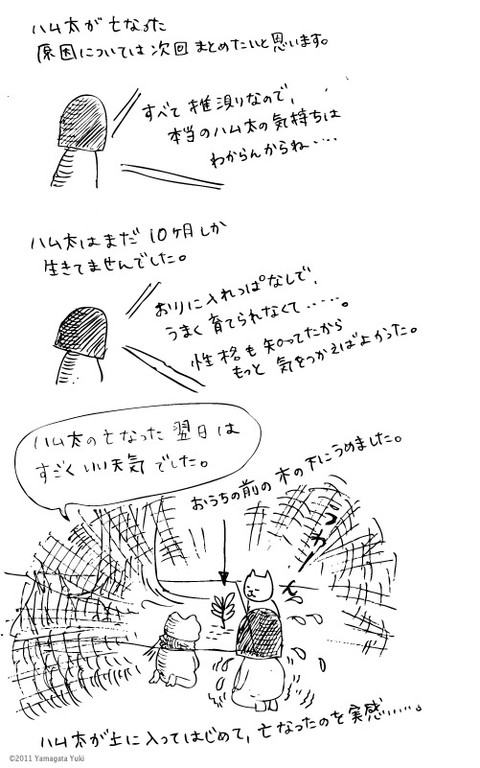 ハム太が亡なった
原因については次回まとめたいと思います。
すべて推測りなので、
本当のハム太の気持ちは
わからんからね‥‥
ハム太はまだ10ヶ月しか
生きてませんでした。
おりに入れっぱなしで、
うまく育てられなくて‥‥‥。
性格も知ってたから
もっと気をつかえばよかった。
ハム太の亡なった翌日は
すごくいい天気でした。
おうちの前の木の下にうめました。
うわーん
ハム太が土に入ってはじめて、亡なったのを実感‥‥‥。
©2011 Yamagata Yuki